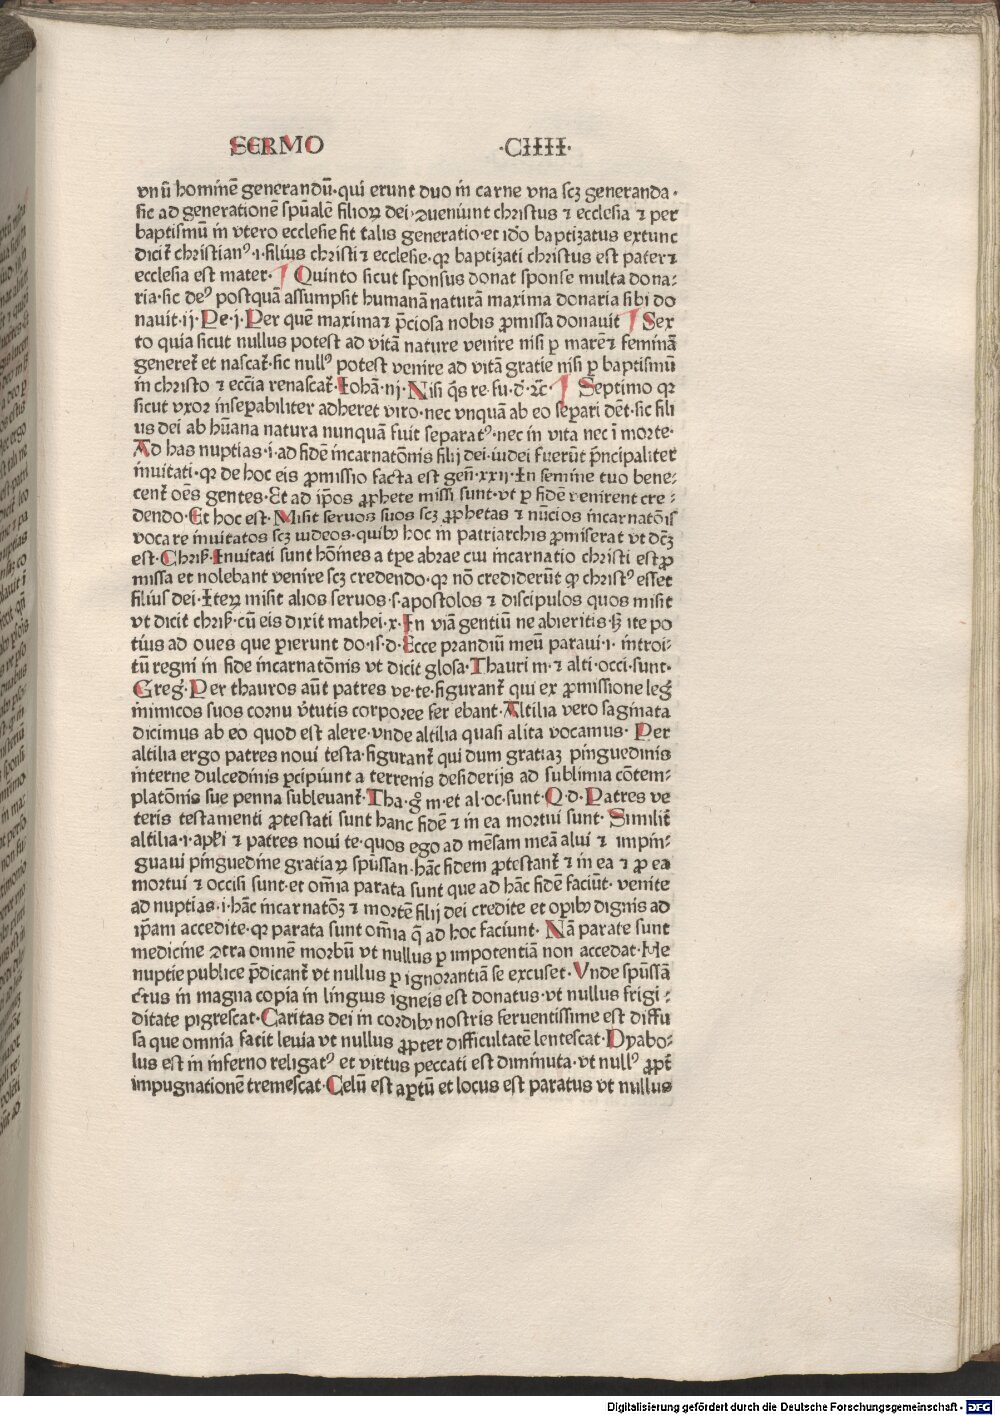 SERMO ·CIIII·
vnū hominē generandū·qui erunt duo in carne vna scꝫ generanda·
sic ad generationē spūalē filioꝝ dei ꝯueniunt christus ⁊ ecclesia ⁊ per
baptismū in vtero ecclesie fit talis generatio·et iđo baptizatus extunc
dicit᷑ christianꝰ·i·filius christi ⁊ ecclesie·qꝛ baptizati christus est pater ⁊
ecclesia est mater· ¶ Quinto sicut sponsus donat sponse multa dona⸗
ria·sic deꝰ postquā assumpsit humanā naturā maxima donaria sibi do
nauit·ij·Pe·j·Per quē maxima ⁊ p̄ciosa nobis ꝓmissa donauit ¶ Sex
to quia sicut nullus potest ad vitā nature venire nisi ꝑ marē ⁊ feminā
generet᷑ et nascat᷑·sic nullꝰ potest venire ad vitā gratie nisi ꝑ baptismū
in christo ⁊ ecc̄ia renascat᷑·Iohā·iij·Nisi q̄s re·fu·đ·⁊c̄· ¶ Septimo qꝛ
sicut vxor inseꝑabiliter adheret viro·nec vnquā ab eo seꝑari dēt·sic fili
us dei ab hūana natura nunquā fuit separatꝰ·nec in vita nec ī morte·
Ad has nuptias·i·ad fidē incarnatōnis filij dei·iudei fuerūt p̄ncipaliter
inuitati·qꝛ de hoc eis ꝓmissio facta est gen̄·xxij·In semine tuo bene⸗
cent᷑ oēs gentes·Et ad ip̄os ꝓphete missi sunt·vt ꝑ fidē venirent cre⸗
dendo·Et hoc est·Misit seruos suos scꝫ ꝓphetas ⁊ nūcios incarnatōis
vocare inuitatos scꝫ iudeos·quibꝫ hoc in patriarchis ꝓmiserat vt dc̄ꝫ
est·Chrisꝭ·Inuitati sunt hoīnes a tꝑe abrae cui incarnatio christi est ꝓ
missa et nolebant venire scꝫ credendo·qꝛ nō crediderūt ꝙ christꝰ esset
filius dei·Iteꝝ misit alios seruos·s·apostolos ⁊ discipulos quos misit
vt dicit chrisꝭ·cū eis dixit mathei·x·In viā gentiū ne abieritis·sꝫ ite po
tius ad oues que ꝑierunt do·is·d·Ecce prandiū meū paraui·i·introi⸗
tū regni in fide incarnatōnis vt dicit glosa·Thauri m·⁊ alti·occi·sunt·
Greg᷑·Per thauros aūt patres ve·te·figurant᷑ qui ex ꝓmissione leg᷑
inimicos suos cornu v̄tutis corporee fer ebant·Altilia vero saginata
dicimus ab eo quod est alere·vnde altilia quasi alita vocamus· Per
altilia ergo patres noui testa·figurant᷑ qui dum gratiaꝫ pinguedinis
interne dulcedinis ꝑcipiunt a terrenis desiderijs ad sublimia cōtem⸗
platōnis sue penna subleuant᷑·Tha·g̊ m·et al·oc·sunt·Q·d·Patres ve
teris testamenti ꝓtestati sunt hanc fidē ⁊ in ea mortui sunt· Similit᷑
altilia·i·apl̄i ⁊ patres noui te·quos ego ad mēsam meā alui ⁊ impin⸗
guaui pinguedine gratiaꝝ spūssan·hāc fidem ꝓtestant᷑ ⁊ in ea ⁊ ꝓ ea
mortui ⁊ occisi sunt·et om̄ia parata sunt que ad hāc fidē faciūt· venite
ad nuptias·i·hāc incarnatōꝫ ⁊ mortē filij dei credite et oꝑibꝫ dignis ad
ip̄am accedite·qꝛ parata sunt om̄ia q̄ ad hoc faciunt· Nā parate sunt
medicine ꝯtra omnē morbū vt nullus ꝑ impotentiā non accedat·He
nuptie publice p̄dicant᷑ vt nullus ꝑ ignorantiā se excuset·Vnde spūssā
ctus in magna copia in linguis igneis est donatus·vt nullus frigi⸗
ditate pigrescat·Caritas dei in cordibꝫ nostris feruentissime est diffu
sa que omnia facit leuia vt nullus ꝓpter difficultatē lentescat·Dyabo⸗
lus est in inferno religatꝰ et virtus peccati est diminuta·vt nullꝰ ꝓpt᷑
impugnationē tremescat·Celū est aꝑtū et locus est paratus vt nullus
Digitalisierung gefördert durch die Deutsche Forschungsgemeinschaft - DFG